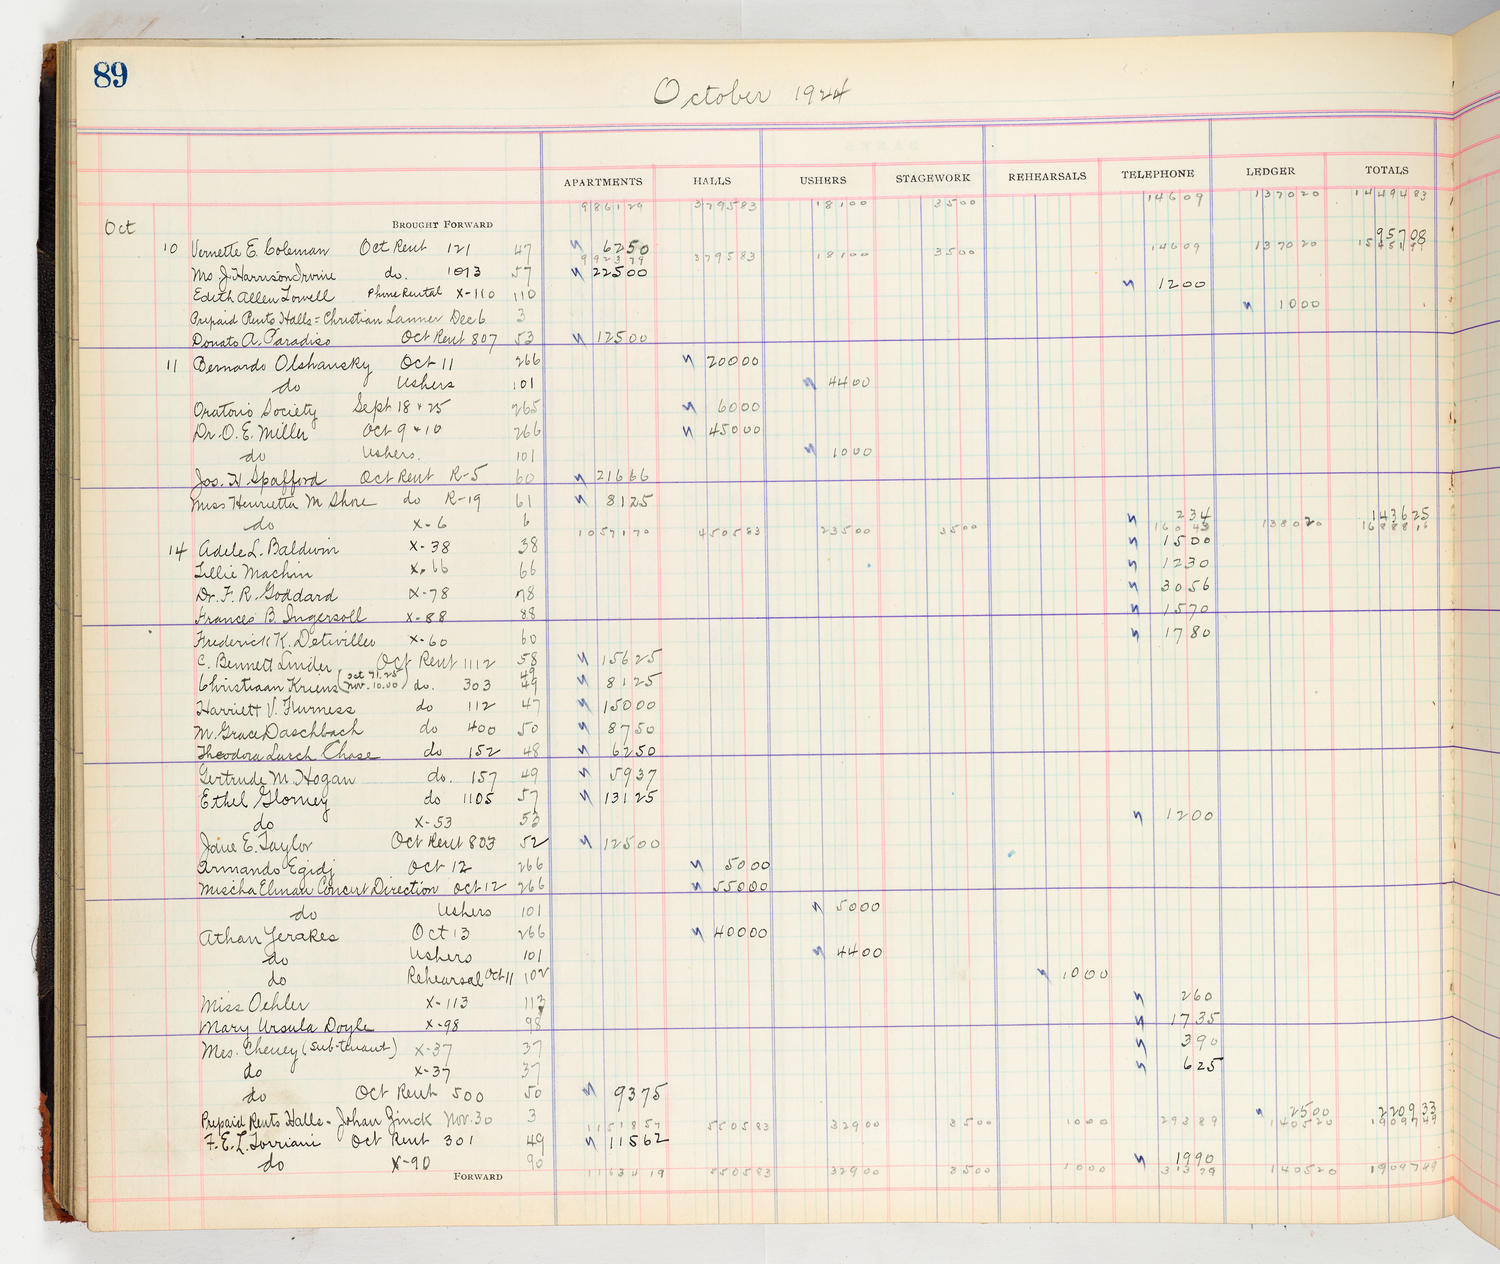 89
October 1924
APARTMENTS HALLS USHERS STAGEWORK REHEARSALS TELEPHONE LEDGER TOTALS
986129 379583 18100 3500 14609 137020 1449483
Oct BROUGHT FORWARD
95708
10 Vernette E. Coleman Oct Rent 121 47 6250
992379 379583 18100 3500 14609 137020
Ms J. Harrison Irvine do. 1013 57 22500
Edith Allen Lowell Phone Rental X-110 110 1200
Prepaid Rents Halls = Christian Lanner Dec 6 3 1000
Donato A. Paradiso Oct Rent 807 53 12500
11 Bernardo Olshansky Oct 11 266 20000
do Ushers 101 4400
Oratorio Society Sept 18 & 25 265 6000
Dr. O. E. Miller Oct 9 & 10 266 45000
do Ushers. 101 1000
Jos. H. Spafford Oct Rent R-5 60 21666
Miss Henrietta M Shore do R-19 61 8125
do X-6 6 234 143625
1059170 450583 23500 3500 16043 138020
14 Adele L. Baldwin X-38 38 1500
Lillie Machin X-66 66 1230
Dr. F. R. Goddard X-78 78 3056
Frances B. Ingersoll X-88 88 1570
Frederick K. Detwiller X-60 60 1780
C. Bennett Linder Oct Rent 1112 58 15625
Christiaan Kriens (Oct 71.25 Nov. 10.00) do. 303 49 8125
Harriett V. Furness do 112 47 15000
M. Grace Daschbach do 400 50 8750
Theodora Lurch Chase do 152 48 6250
Gertrude M. Hogan do. 157 49 5937
Ethel Glorney do 1105 57 13125
do X-53 53 1200
Jane E. Taylor Oct Rent 803 52 12500
Armando Egidj Oct 12 266 5000
Mischa Elman Concert Direction Oct 12 266 55000
do Ushers 101 5000
Athan Yerakes Oct 13 266 40000
do Ushers 101 4400
do Rehearsal Oct 11 102 1000
Miss Oehler X-113 113 260
Mary Ursula Doyle X-98 98 1735
Mes. Cheney (Sub-tenant) X-37 37 390
do X-37 37 625
do Oct Rent 500 50 9375
Prepaid Rents Halls - Johan Zinck Nov. 30 3 2500 220933
1151857 550583 32900 3500 1000 29389 140520 1909749
F. E. L. Torriani Oct Rent 301 49 11562
do X-90 90 1990
FORWARD 1163419 550583 32900 3500 1000 31379 140520 1909749